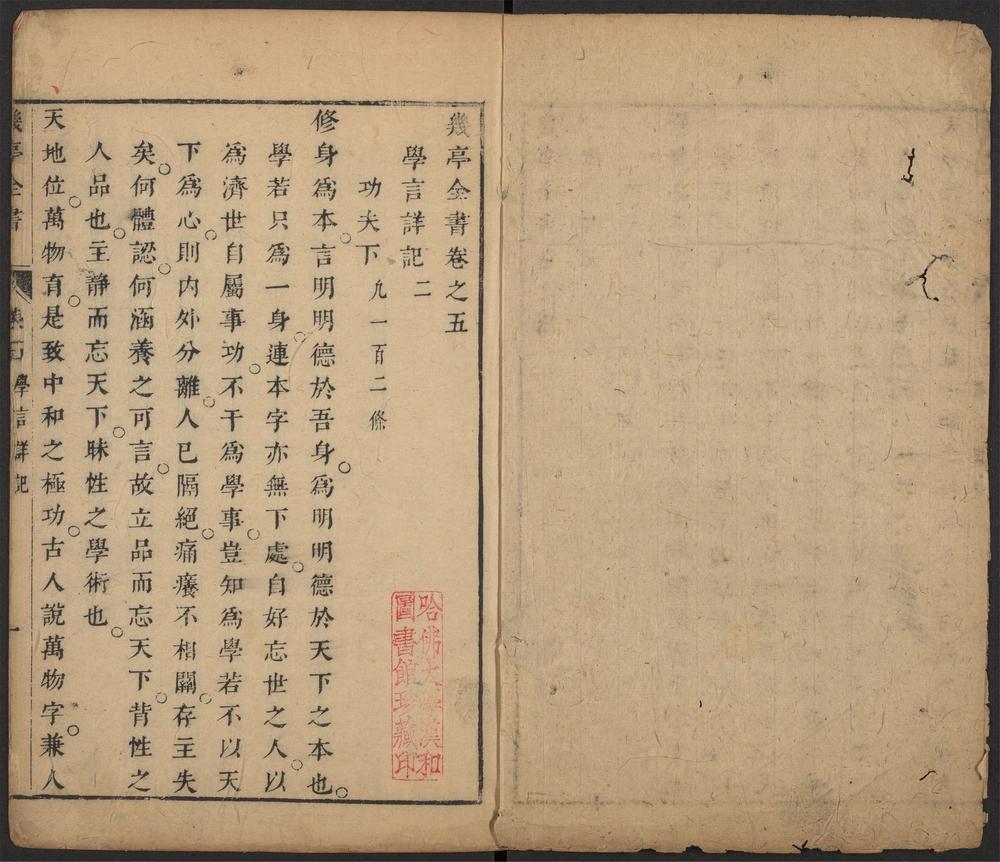 幾亭全書卷之五
學言詳記二
功夫下 凡一百二條
修身爲本言明明德於吾身爲明明德於天下之本也
學若只爲一身連本字亦無下處自好忘世之人以
爲濟世自屬事功不干爲學事豈知爲學若不以天
下爲心則内外分離人已隔絕痛癢不相關存主失
矣何體認何涵養之可言故立品而忘天下背性之
人品也主静而忘天下昧性之學術也
天地位萬物育是致中和之極功古人說萬物字兼人
幾亭全書 學言詳記 一
哈佛大學漢和
圖書館珍藏印